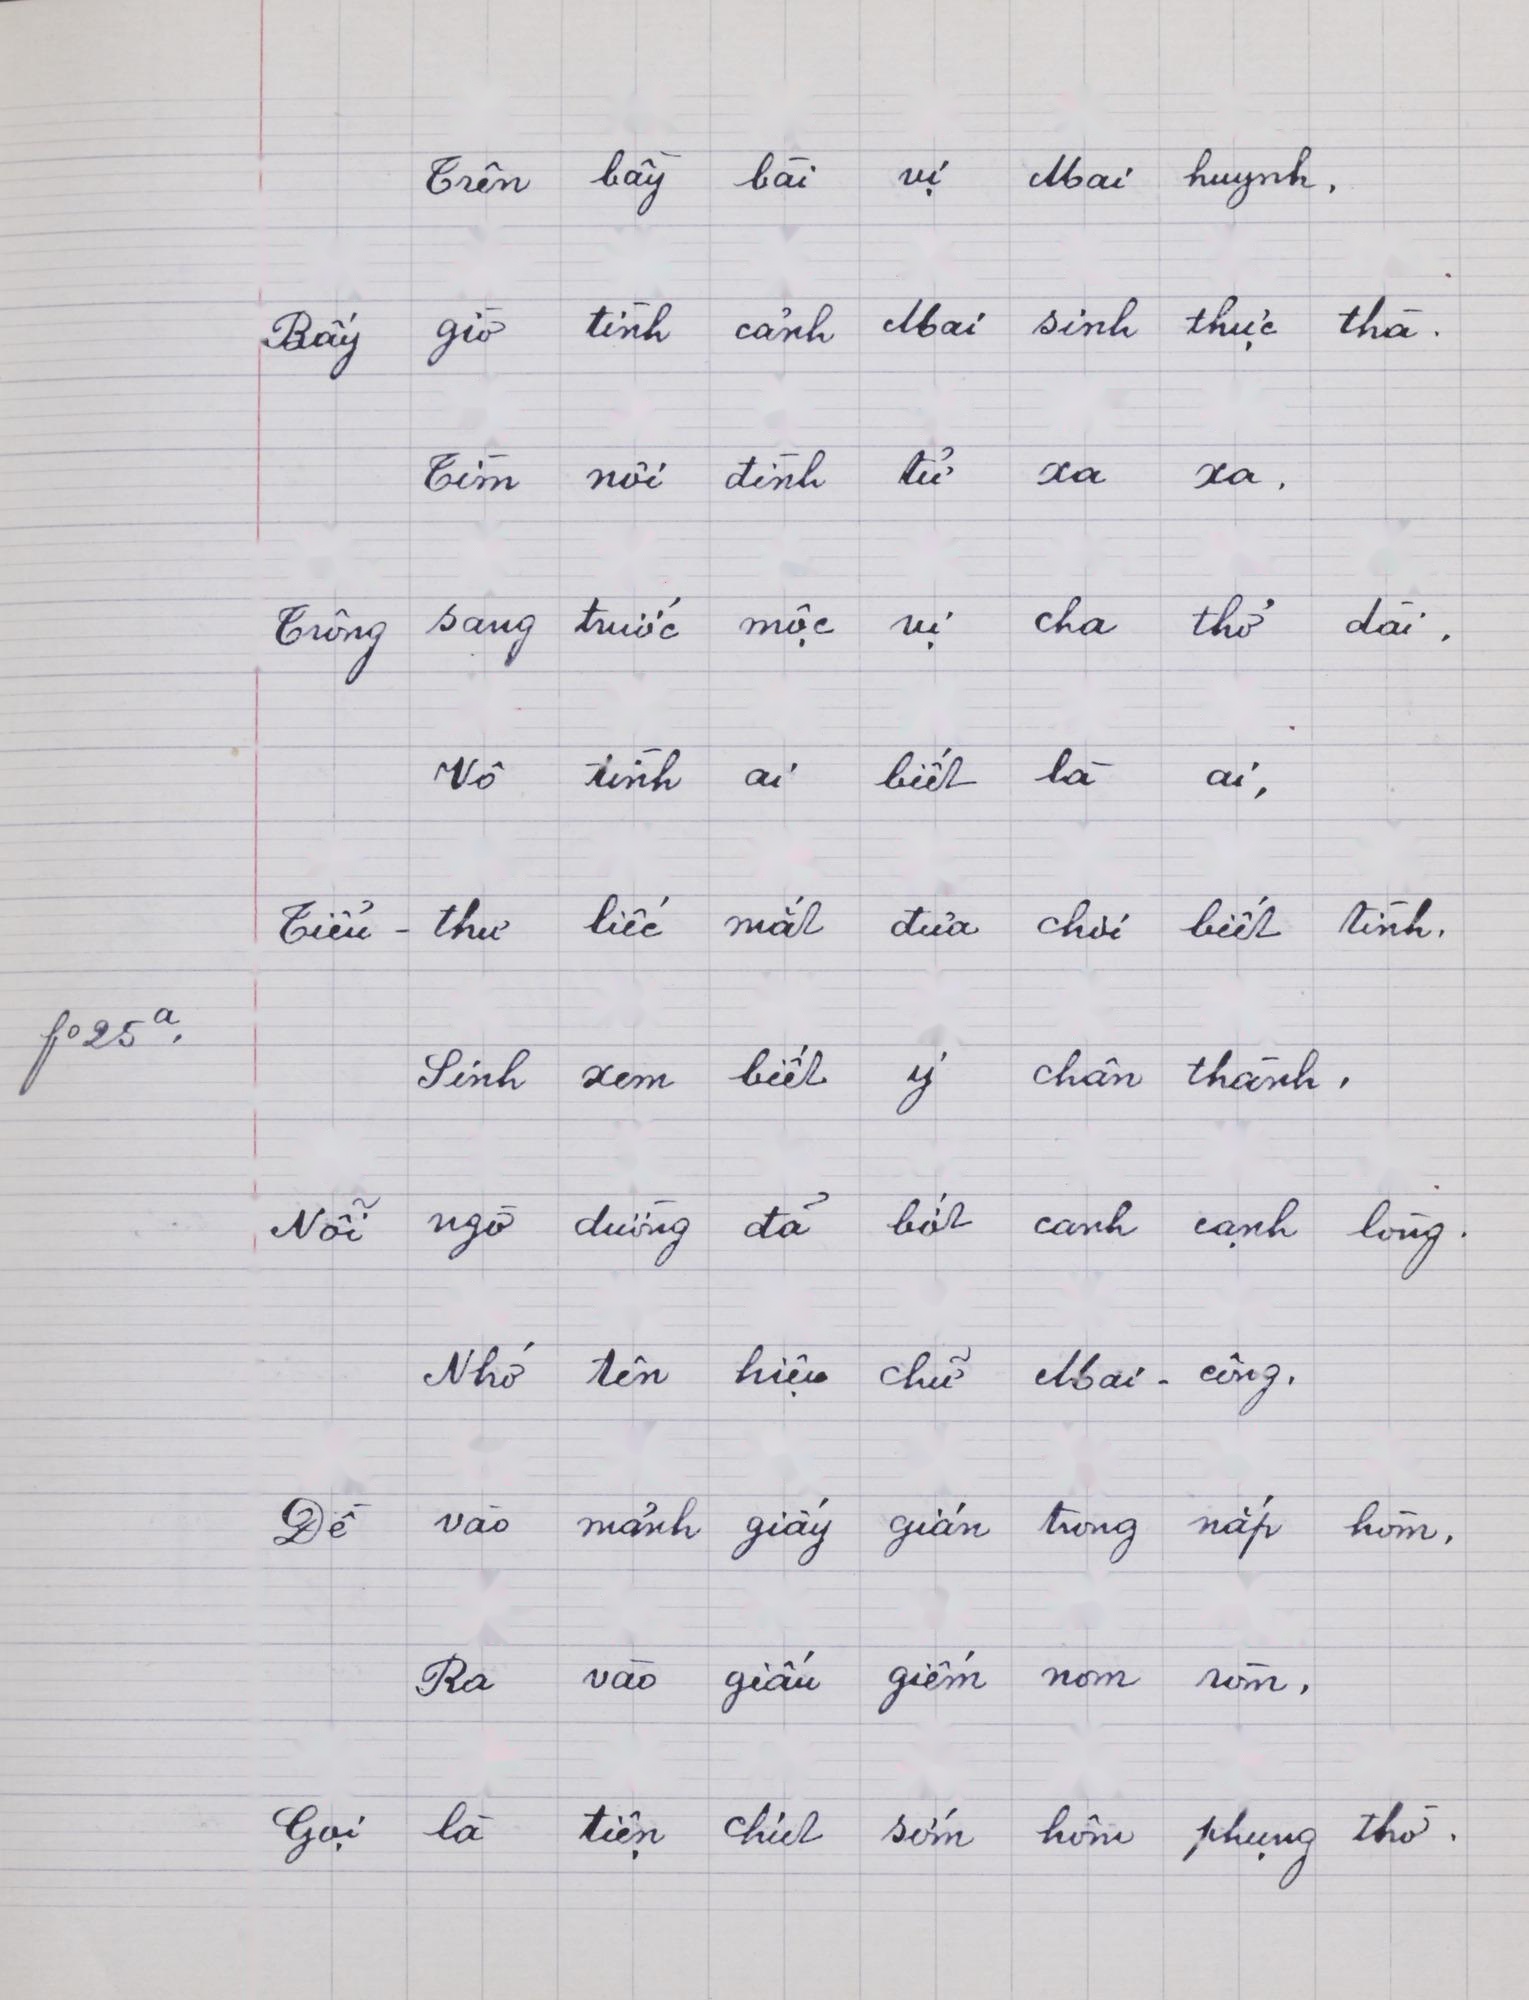 Trên bầy bài vị Mai huynh,
Bấy giờ tình cảnh Mai sinh thực thà.
Tìm nơi đình tử xa xa,
Trông sang trước mộc vị cha thở dài,
Vô tình ai biết là ai,
Tiểu-thư liếc mắt đưa chơi biết tình.
f° 25ª.
Sinh xem biết ý chân thành,
Nỗi ngờ dường đả bớt canh cạnh lòng.
Nhớ tên hiệu chữ Mai-công,
Đề vào mảnh giấy gián trong nắp hòm,
Ra vào giấu giếm nom ròm,
Gọi là tiện chiet sớm hôm phụng thờ.